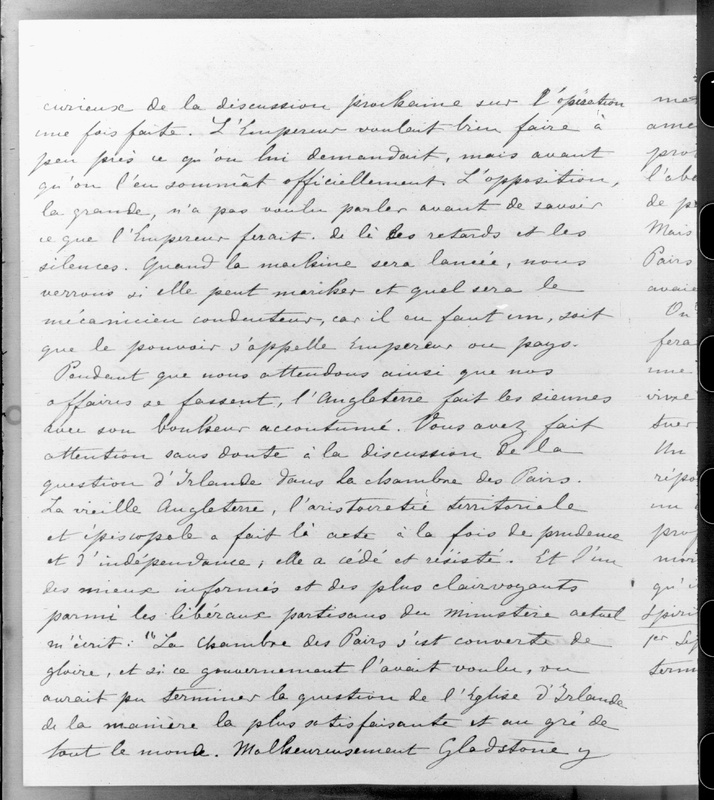 curieux de la discussion prochaine sur l'opération
une fois faite. L'Empereur voulait bien faire à
peu près ce qu'on lui demandait, mais avant
qu'on l'en sommât officiellement. L'opposition,
la grande, n'a pas voulu parler avant de savoir
ce que l'Empereur ferait. de là les retards et les
silences. Quand la machine sera lancée, nous
verrons si elle peut marcher et quel sera le
mécanicien conducteur, car il en faut un, soit
que le pouvoir s'appelle Empereur ou pays.
Pendant que nous attendons ainsi que nos
affaires se fassent, l'Angleterre fait les siennes
avec son bonheur accoutumé. Vous avez fait
attention sans doute à la discussion de la
question d'Irlande dans la chambre des Pairs.
La vieille Angleterre, l'aristocratie territoriale
et épiscopale a fait là acte à la fois de prudence
et d'indépendance; elle a cédé et résisté. Et l'un
des mieux informés et des plus clairvoyants
parmi les libéraux partisans du ministère actuel
m'écrit: "La chambre des Pairs s'est couverte de
gloire, et si ce gouvernement l'avait voulu, on
aurait pu terminer la question de l'Eglise d'Irlande
de la manière la plus satisfaisante et au gré de
tout le monde. Malheureusement Gladstone y
l'ab
de p
Mais
Pairs
avaie
On
fera
une
vive
tuer
Un
répo
un
prop
qu'i
Spiri
1er Sep
term